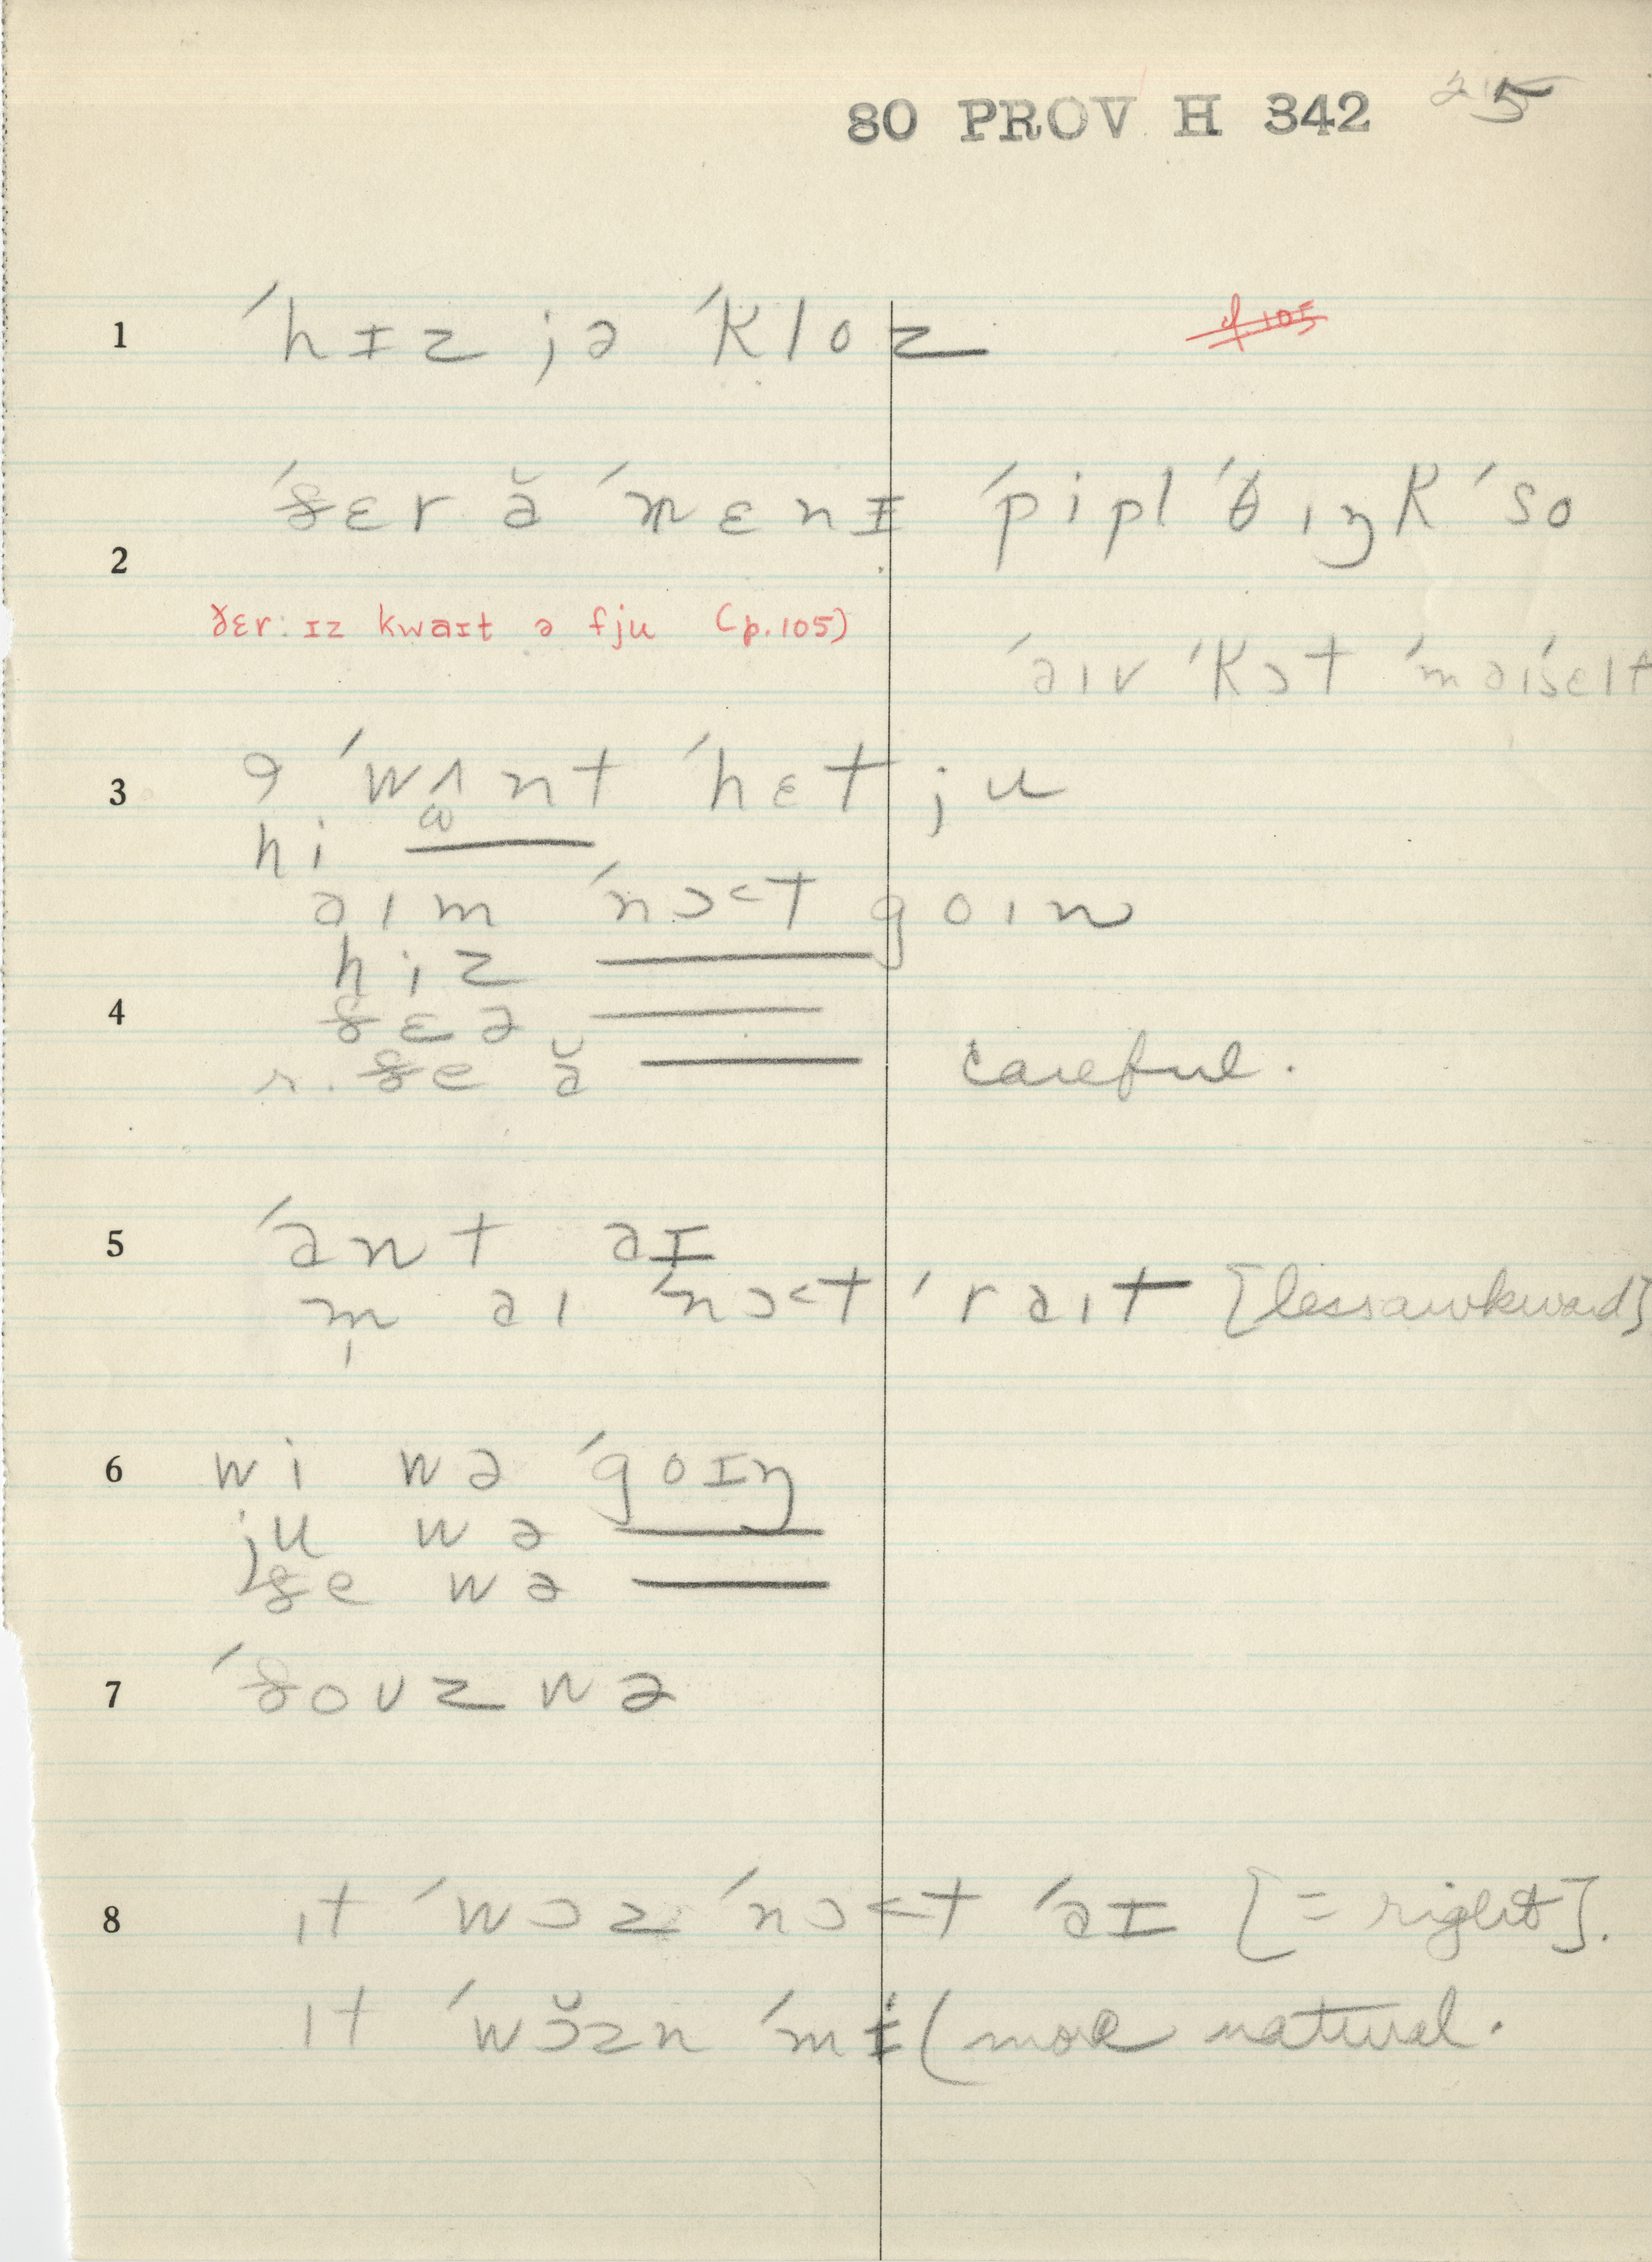 80 PROV H 342 25
1 ´hɪz jə ´kloz
2 ´ðɛr ə̆ ´mɛnɪ ´pipl ´θɪŋk ´so
ðɛr: ɪz kwaɪt ə fju (p.105)
´aɪv ´kɔt
3 ´wʌnt ´hɛt ju
hi
aɪm ´nɔ˂t goɪn
hiz
4 ðɛə
r. ðe ə̆ careful.
5 ´ant aɪ
m̩ aɪ ´nɔ˂t ´raɪt [less awkward]
6 wi wə ´goɪŋ
ju wə
ðe wə
7 ´ðouz wə
8 ɪt ´wɔz ´nɔ˂t ´aɪ [= right].
ɪt ´wɔ̆zn ´mi (more natural.